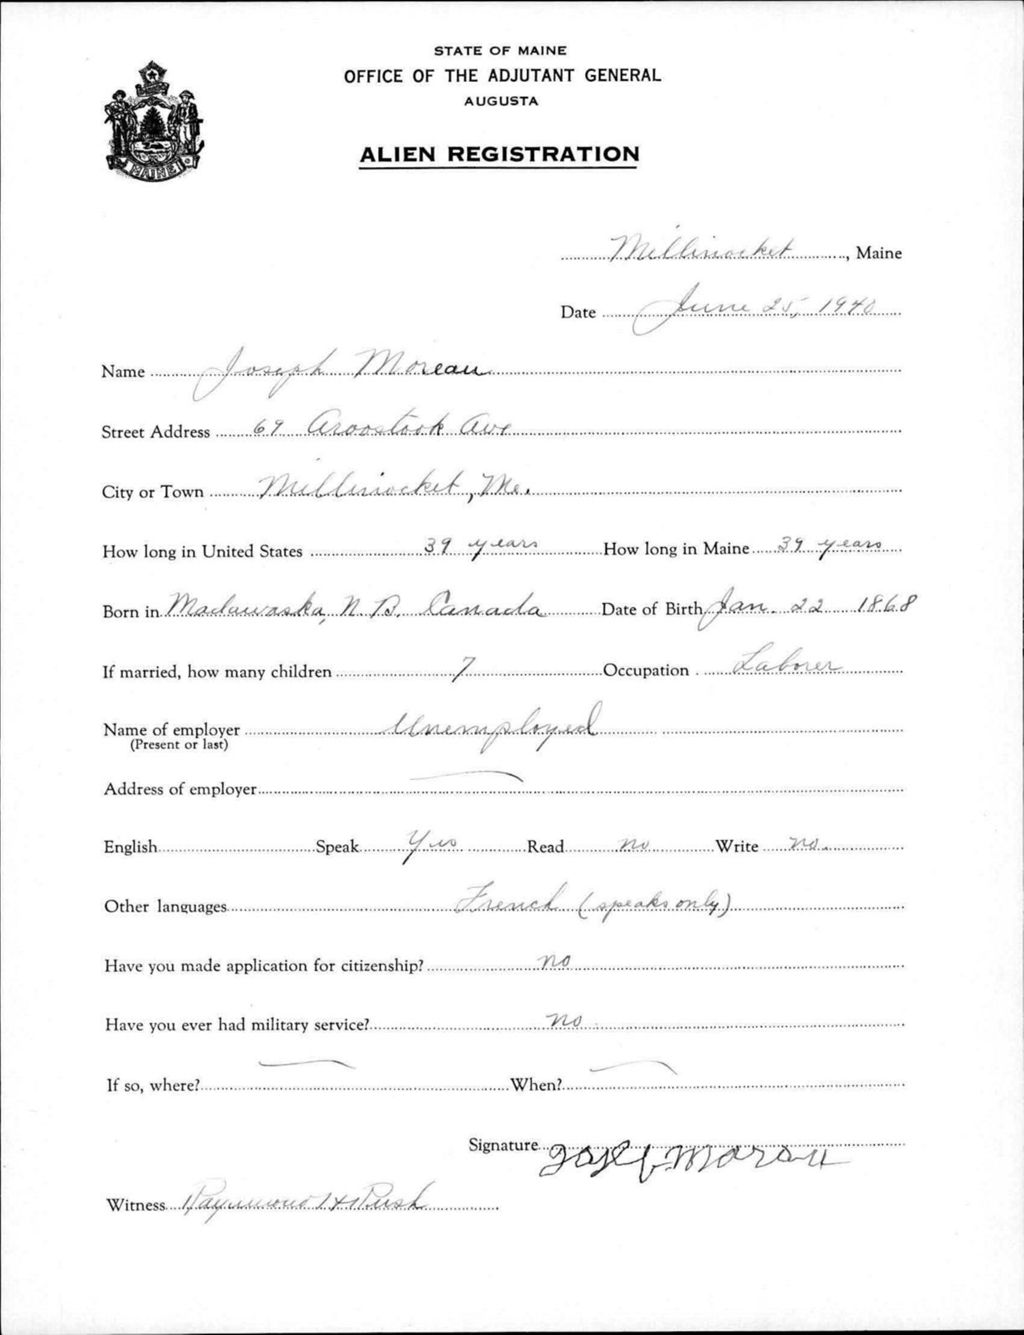 STATE OF MAINE
OFFICE OF THE ADJUTANT GENERAL
AUGUSTA
ALIEN REGISTRATION
MAINE
Millinocket, Maine
Date June 25, 1940
Name Joseph Moreau
Street Address 69 Aroostook Ave
City or Town Millinocket, Me.
How long in United States 39 years How long in Maine 39 years
Born in Madawaska, N.B. Canada Date of Birth Jan. 22 1868
If married, how many children 7 Occupation Laborer
Name of employer Unemployed
(Present or last)
Address of employer
English Speak Yes Read no Write no.
Other languages French (speaks only)
Have you made application for citizenship? no
Have you ever had military service? no
If so, where? When?
Signature Josef Morau
Witness Raymond H Rush